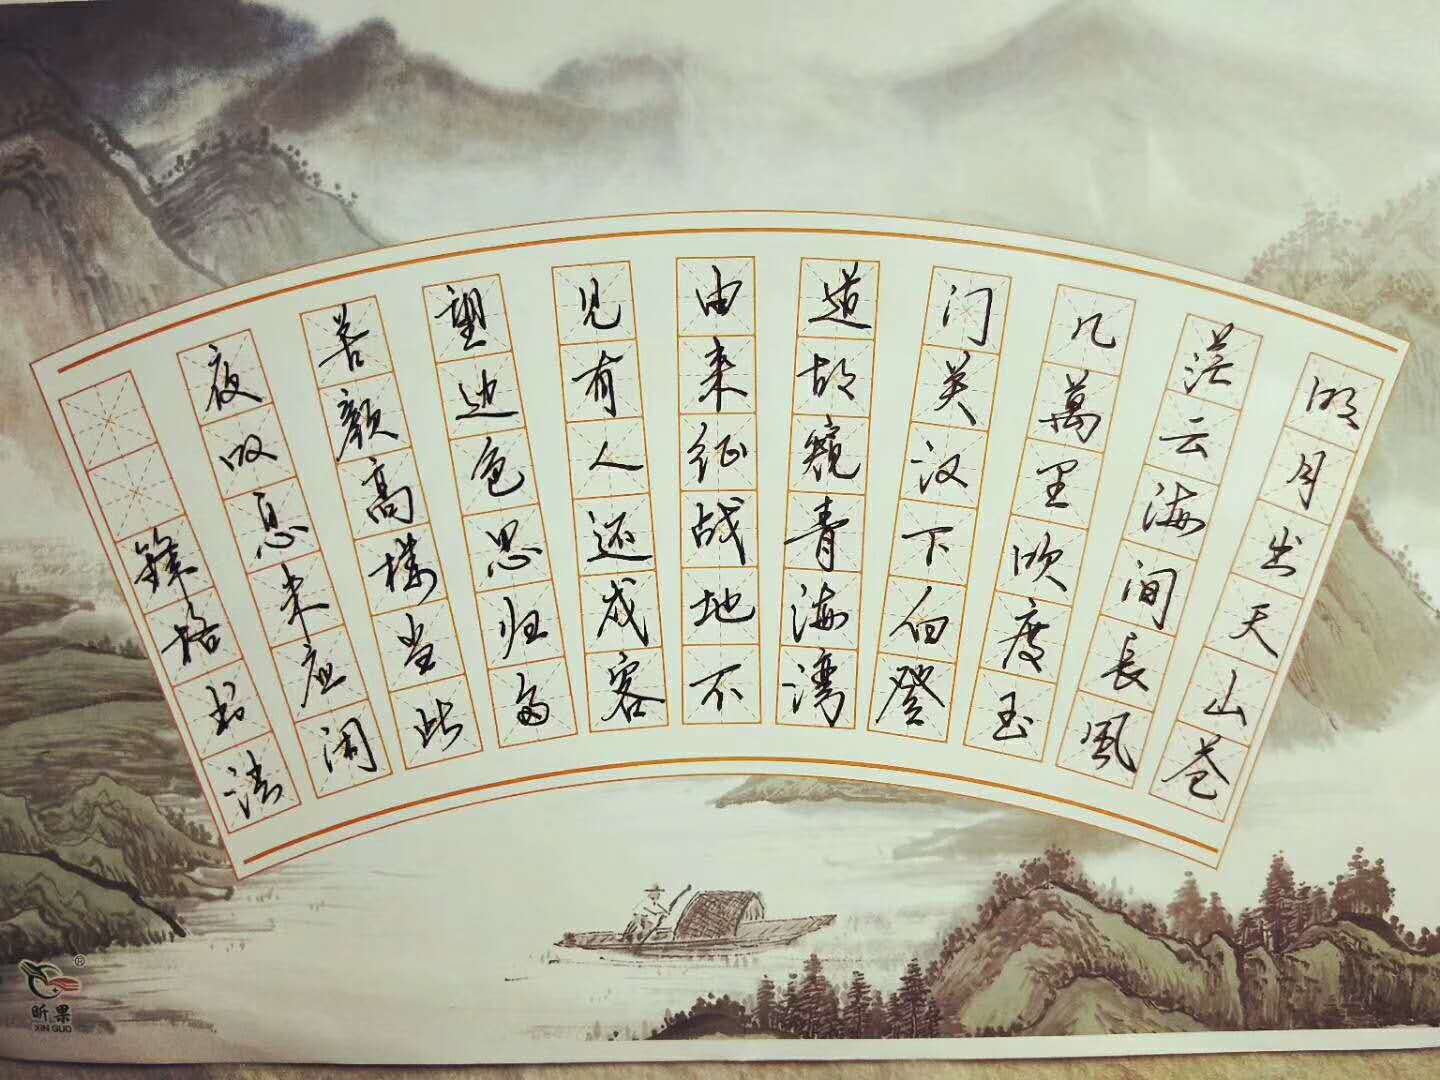 明月出天山苍
茫云海间長風
几萬里吹度玉
门关汉下白登
道胡窥青海湾
由来征战地不
见有人还戍客
望边色思归多
苦颜高楼当此
夜叹息未应闲
书法
®
昕果
XIN GUO